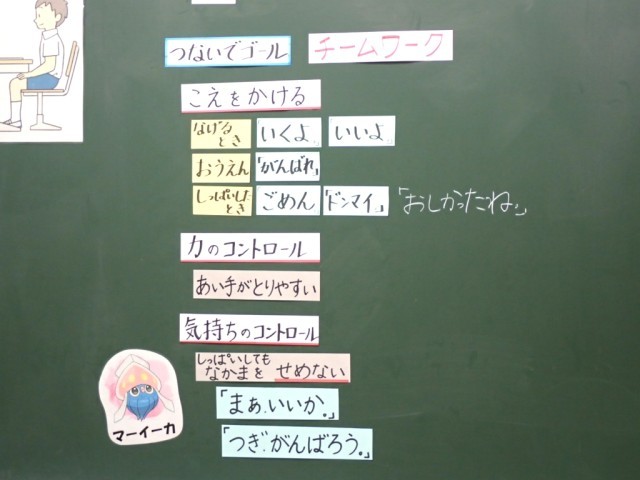 つないでゴール チームワーク
こえをかける
なげるとき いくよ。 いいよ。
おうえん 「がんばれ」
しっぱいしたとき ごめん 「ドンマイ。」 「おしかったね。」
力のコントロール
あい手がとりやすい
気持ちのコントロール
しっぱいしても
なかまを せめない
「まぁ、いいか。」
「つぎ、がんばろう。」
マーイーカ